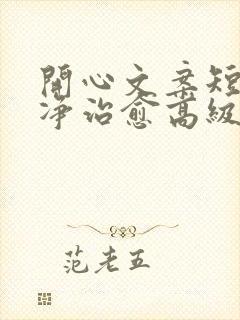 開心文案短
净治愈高級
范老五